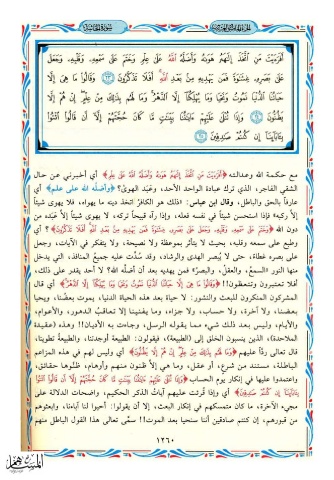 سورة الجاثية
أَفَرَءَيْتَ مَنِ ٱتَّخَذَ إِلَٰهَهُۥ هَوَىٰهُ وَأَضَلَّهُ ٱللَّهُ عَلَىٰ عِلْمٍ وَخَتَمَ عَلَىٰ سَمْعِهِۦ وَقَلْبِهِۦ وَجَعَلَ
عَلَىٰ بَصَرِهِۦ غِشَٰوَةً فَمَن يَهْدِيهِ مِنۢ بَعْدِ ٱللَّهِ أَفَلَا تَذَكَّرُونَ ٢٣ وَقَالُوا۟ مَا هِىَ إِلَّا
حَيَاتُنَا ٱلدُّنْيَا نَمُوتُ وَنَحْيَا وَمَا يُهْلِكُنَآ إِلَّا ٱلدَّهْرُ وَمَا لَهُم بِذَٰلِكَ مِنْ عِلْمٍ إِنْ هُمْ إِلَّا
يَظُنُّونَ ٢٤ وَإِذَا تُتْلَىٰ عَلَيْهِمْ ءَايَٰتُنَا بَيِّنَٰتٍ مَّا كَانَ حُجَّتَهُمْ إِلَّآ أَن قَالُوا۟ ٱئْتُوا۟
بِـَٔابَآئِنَآ إِن كُنتُمْ صَٰدِقِينَ ٢٥
مع حكمة الله وعدالته ﴿أَفَرَءَيْتَ مَنِ ٱتَّخَذَ إِلَٰهَهُۥ هَوَىٰهُ وَأَضَلَّهُ ٱللَّهُ عَلَىٰ عِلْمٍ﴾ أي أخبرني عن حال
الشقي الفاجر، الذي ترك عبادة الواحد الأحد، وعَبَد الهوى؟ ﴿وأضلَّه الله على علم﴾ أي
عارفاً بالحق والباطل، وقال ابن عباس: «ذلك هو الكافرُ اتخذ دينه ما يهواه، فلا يهوى شيئاً
إلا ركبه» فإذا استحسن شيئاً في نفسه فعله، وإذا رآه قبيحاً تركه، لا يهوى شيئاً إلاَّ عَبَده من
دون الله ﴿وَخَتَمَ عَلَىٰ سَمْعِهِۦ وَقَلْبِهِۦ وَجَعَلَ عَلَىٰ بَصَرِهِۦ غِشَٰوَةً فَمَن يَهْدِيهِ مِنۢ بَعْدِ ٱللَّهِ أَفَلَا تَذَكَّرُونَ﴾؟ أي
طبع على سمعه وقلبه، بحيث لا يتأثر بموعظة ولا نصيحة، ولا يتفكر في الآيات، وجعل
على بصره غطاء، حتى لا يُبصر الهدى والرشاد، وقد سُدَّت عليه جميعُ المنافذ، التي يدخل
منها النور السمعُ، والعقلُ، والبصرُ؟ فمن يهديه بعد أن أضله الله؟ لا أحد يقدر على ذلك،
أفلا تعتبرون وتتعظون!! ﴿وَقَالُوا۟ مَا هِىَ إِلَّا حَيَاتُنَا ٱلدُّنْيَا نَمُوتُ وَنَحْيَا وَمَا يُهْلِكُنَآ إِلَّا ٱلدَّهْرُ﴾ أي قال
المشركون المنكرون للبعث والنشور: لا حياة بعد هذه الحياة الدنيا، يموت بعضُنا، ويحيا
بعضنا، ولا آخرة، ولا حساب، ولا جزاء، وما يفنينا إلا تعاقبُ الدهور، والأعوام،
والأيام، وليس بعد ذلك شيء مما يقوله الرسل، وجاءت به الأديان!! وهذه (عقيدة
الملاحدة)، الذين ينسبون الخلق إلى (الطبيعة)، فيقولون: الطبيعة أوجدتنا، والطبيعة تطوينا،
قال تعالى ردّاً عليهم ﴿وَمَا لَهُم بِذَٰلِكَ مِنْ عِلْمٍ إِنْ هُمْ إِلَّا يَظُنُّونَ﴾ أي وليس لهم في هذه المزاعم
الباطلة، مستند من شرع، أو عقل، وما هي إلاَّ ظنون منهم وأوهام، ظنُّوها حقائق،
واعتمدوا عليها في إنكار يوم الحساب ﴿وَإِذَا تُتْلَىٰ عَلَيْهِمْ ءَايَٰتُنَا بَيِّنَٰتٍ مَّا كَانَ حُجَّتَهُمْ إِلَّآ أَن قَالُوا۟ ٱئْتُوا۟
بِـَٔابَآئِنَآ إِن كُنتُمْ صَٰدِقِينَ﴾ أي وإذا قُرئت عليهم آياتُ الذكر الحكيم، واضحات الدلالة على
مجيء الآخرة، ما كان متمسكهم في إنكار البعث، إلا أن يقولوا: أحيوا لنا آباءنا، وابعثوهم
من قبورهم، إن كنتم صادقين أننا سنحيا بعد الموت!! سمَّى تعالى هذا القول الباطل منهم
١٢٦٠